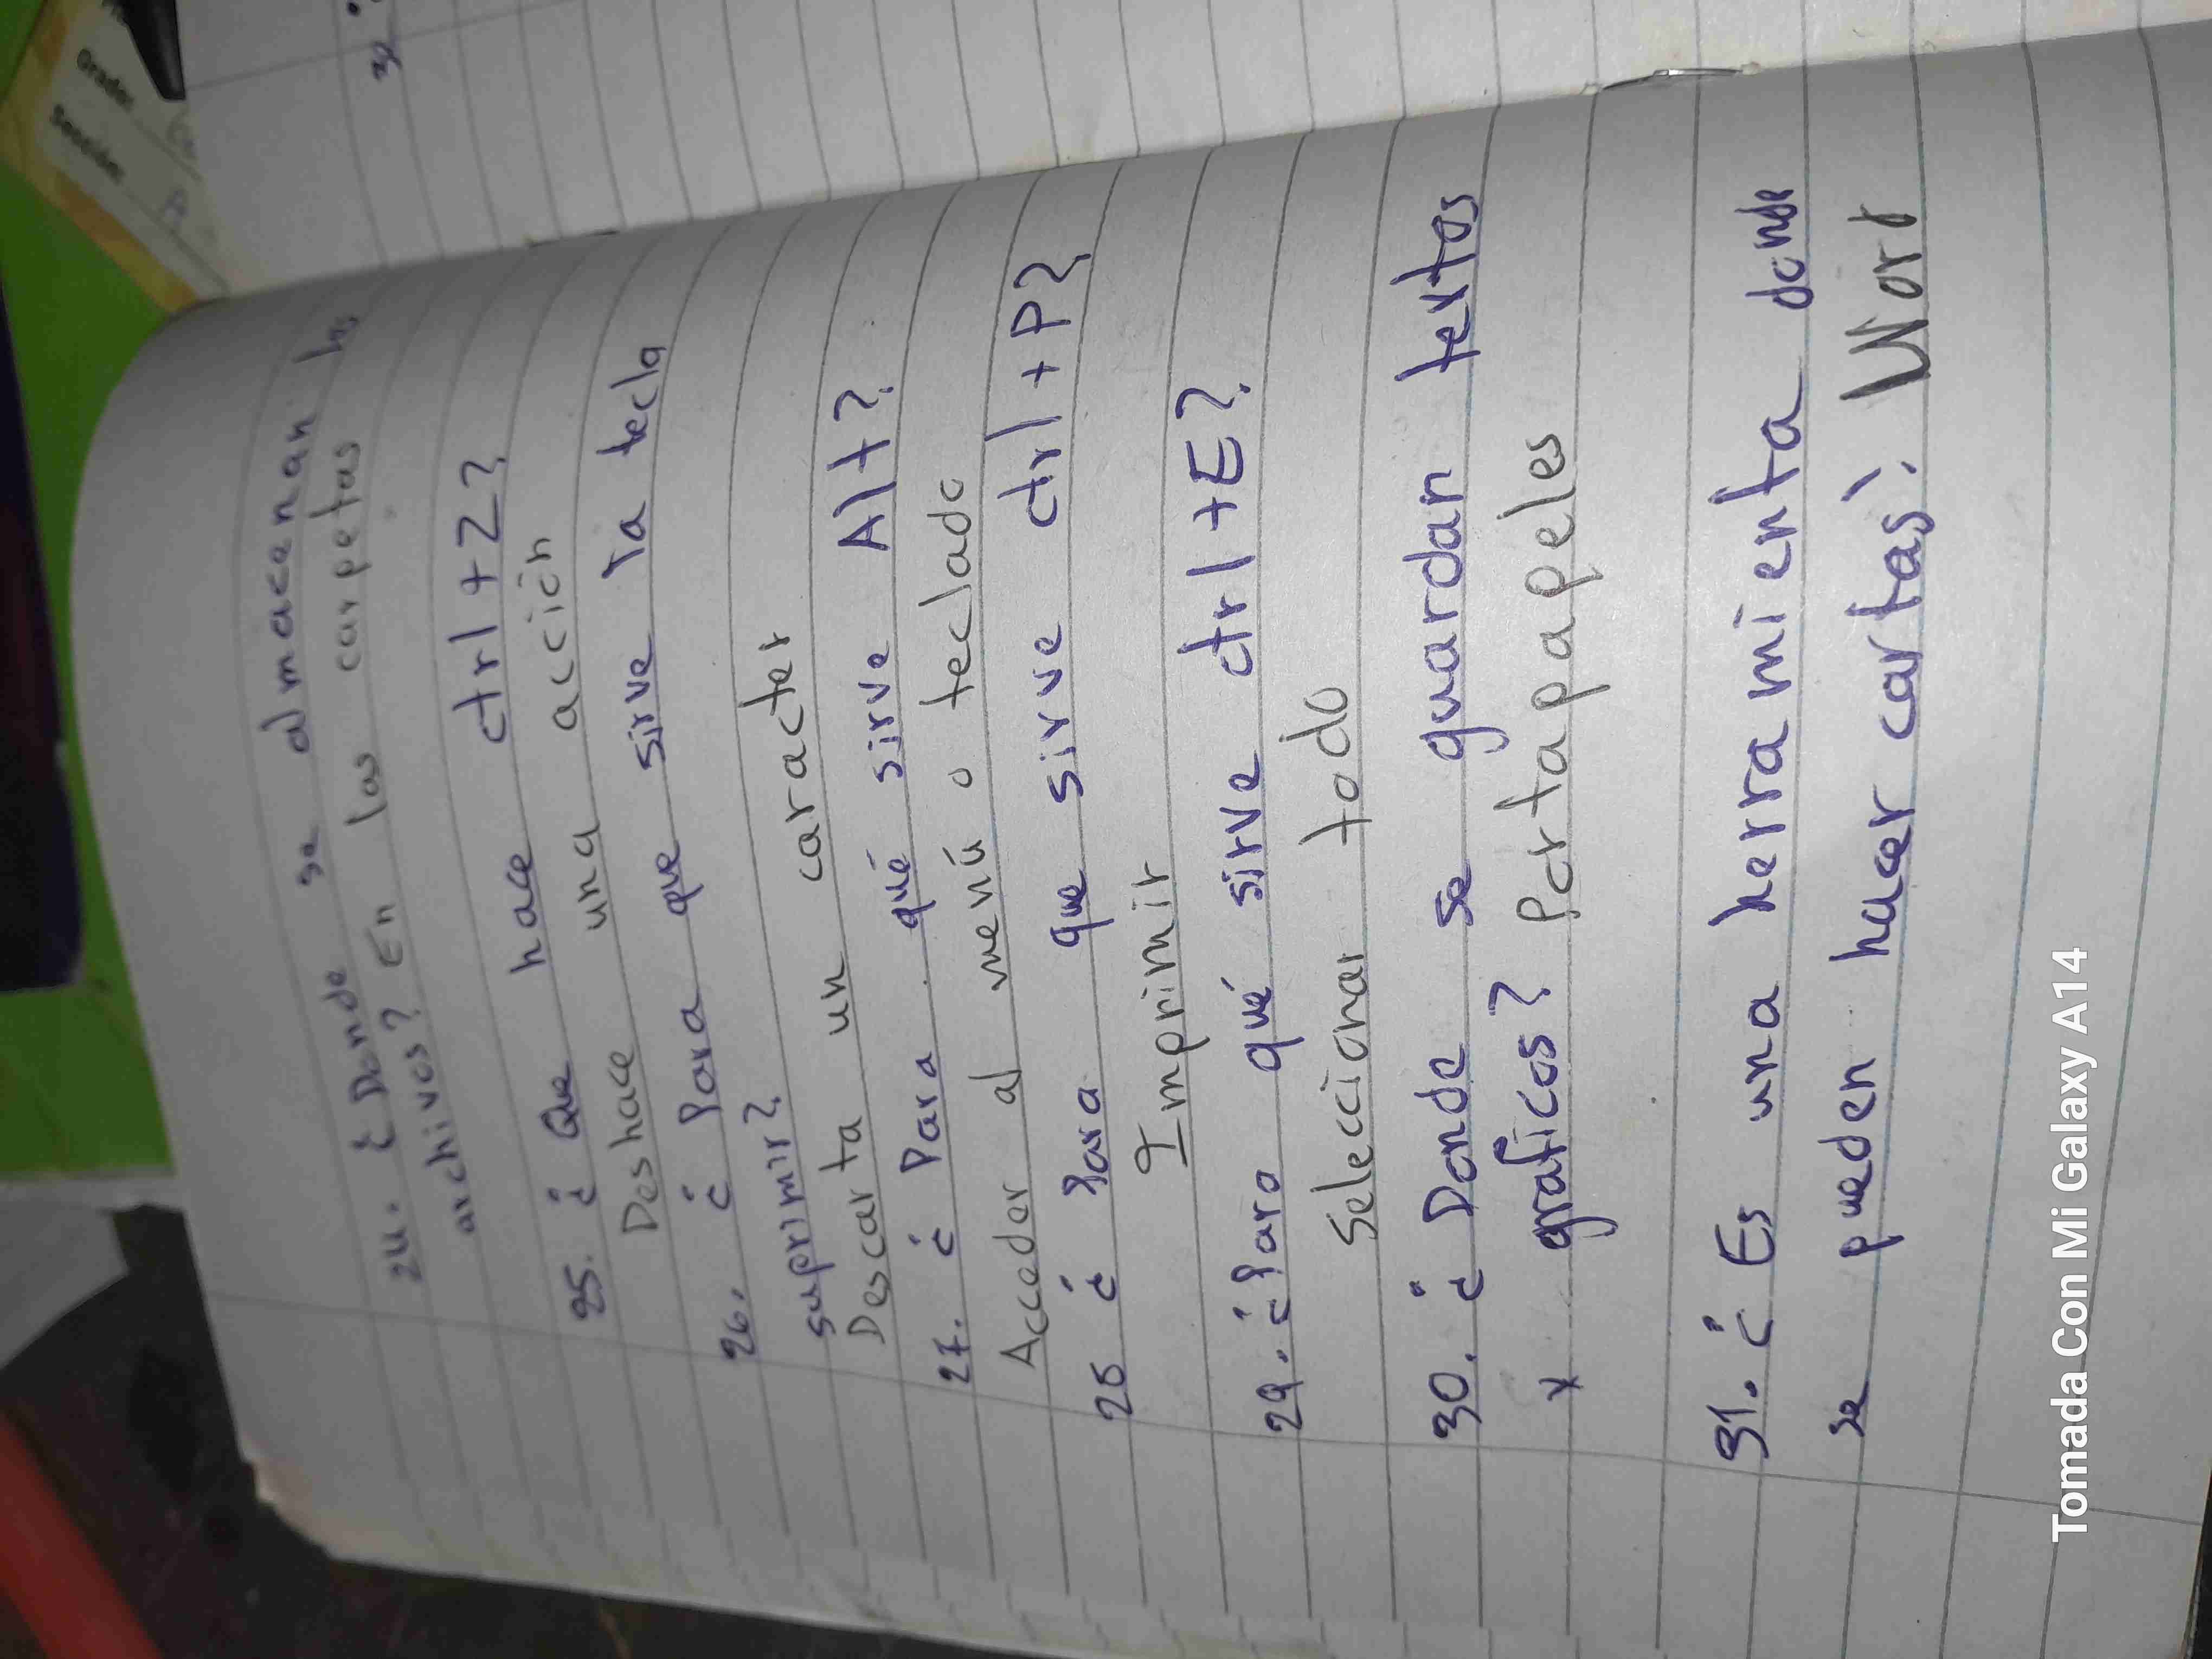 24. ¿Donde se almacenan los
archivos? En las carpetas
25. ¿Que hace ctrl+Z?
Deshace una acción
26. ¿Para que sirve la tecla
suprimir?
Descarta un caracter
27. ¿Para qué sirve Alt?
Acceder al menú o teclado
28 ¿Para que sirve ctrl+P?
Imprimir
29. ¿Para qué sirve ctrl+E?
Seleccionar todo
30. ¿Donde se guardan textos
y graficos? Portapapeles
31. ¿Es una herramienta donde
se pueden hacer cartas? Word
Tomada Con Mi Galaxy A14
Grado:
Sección:
32.